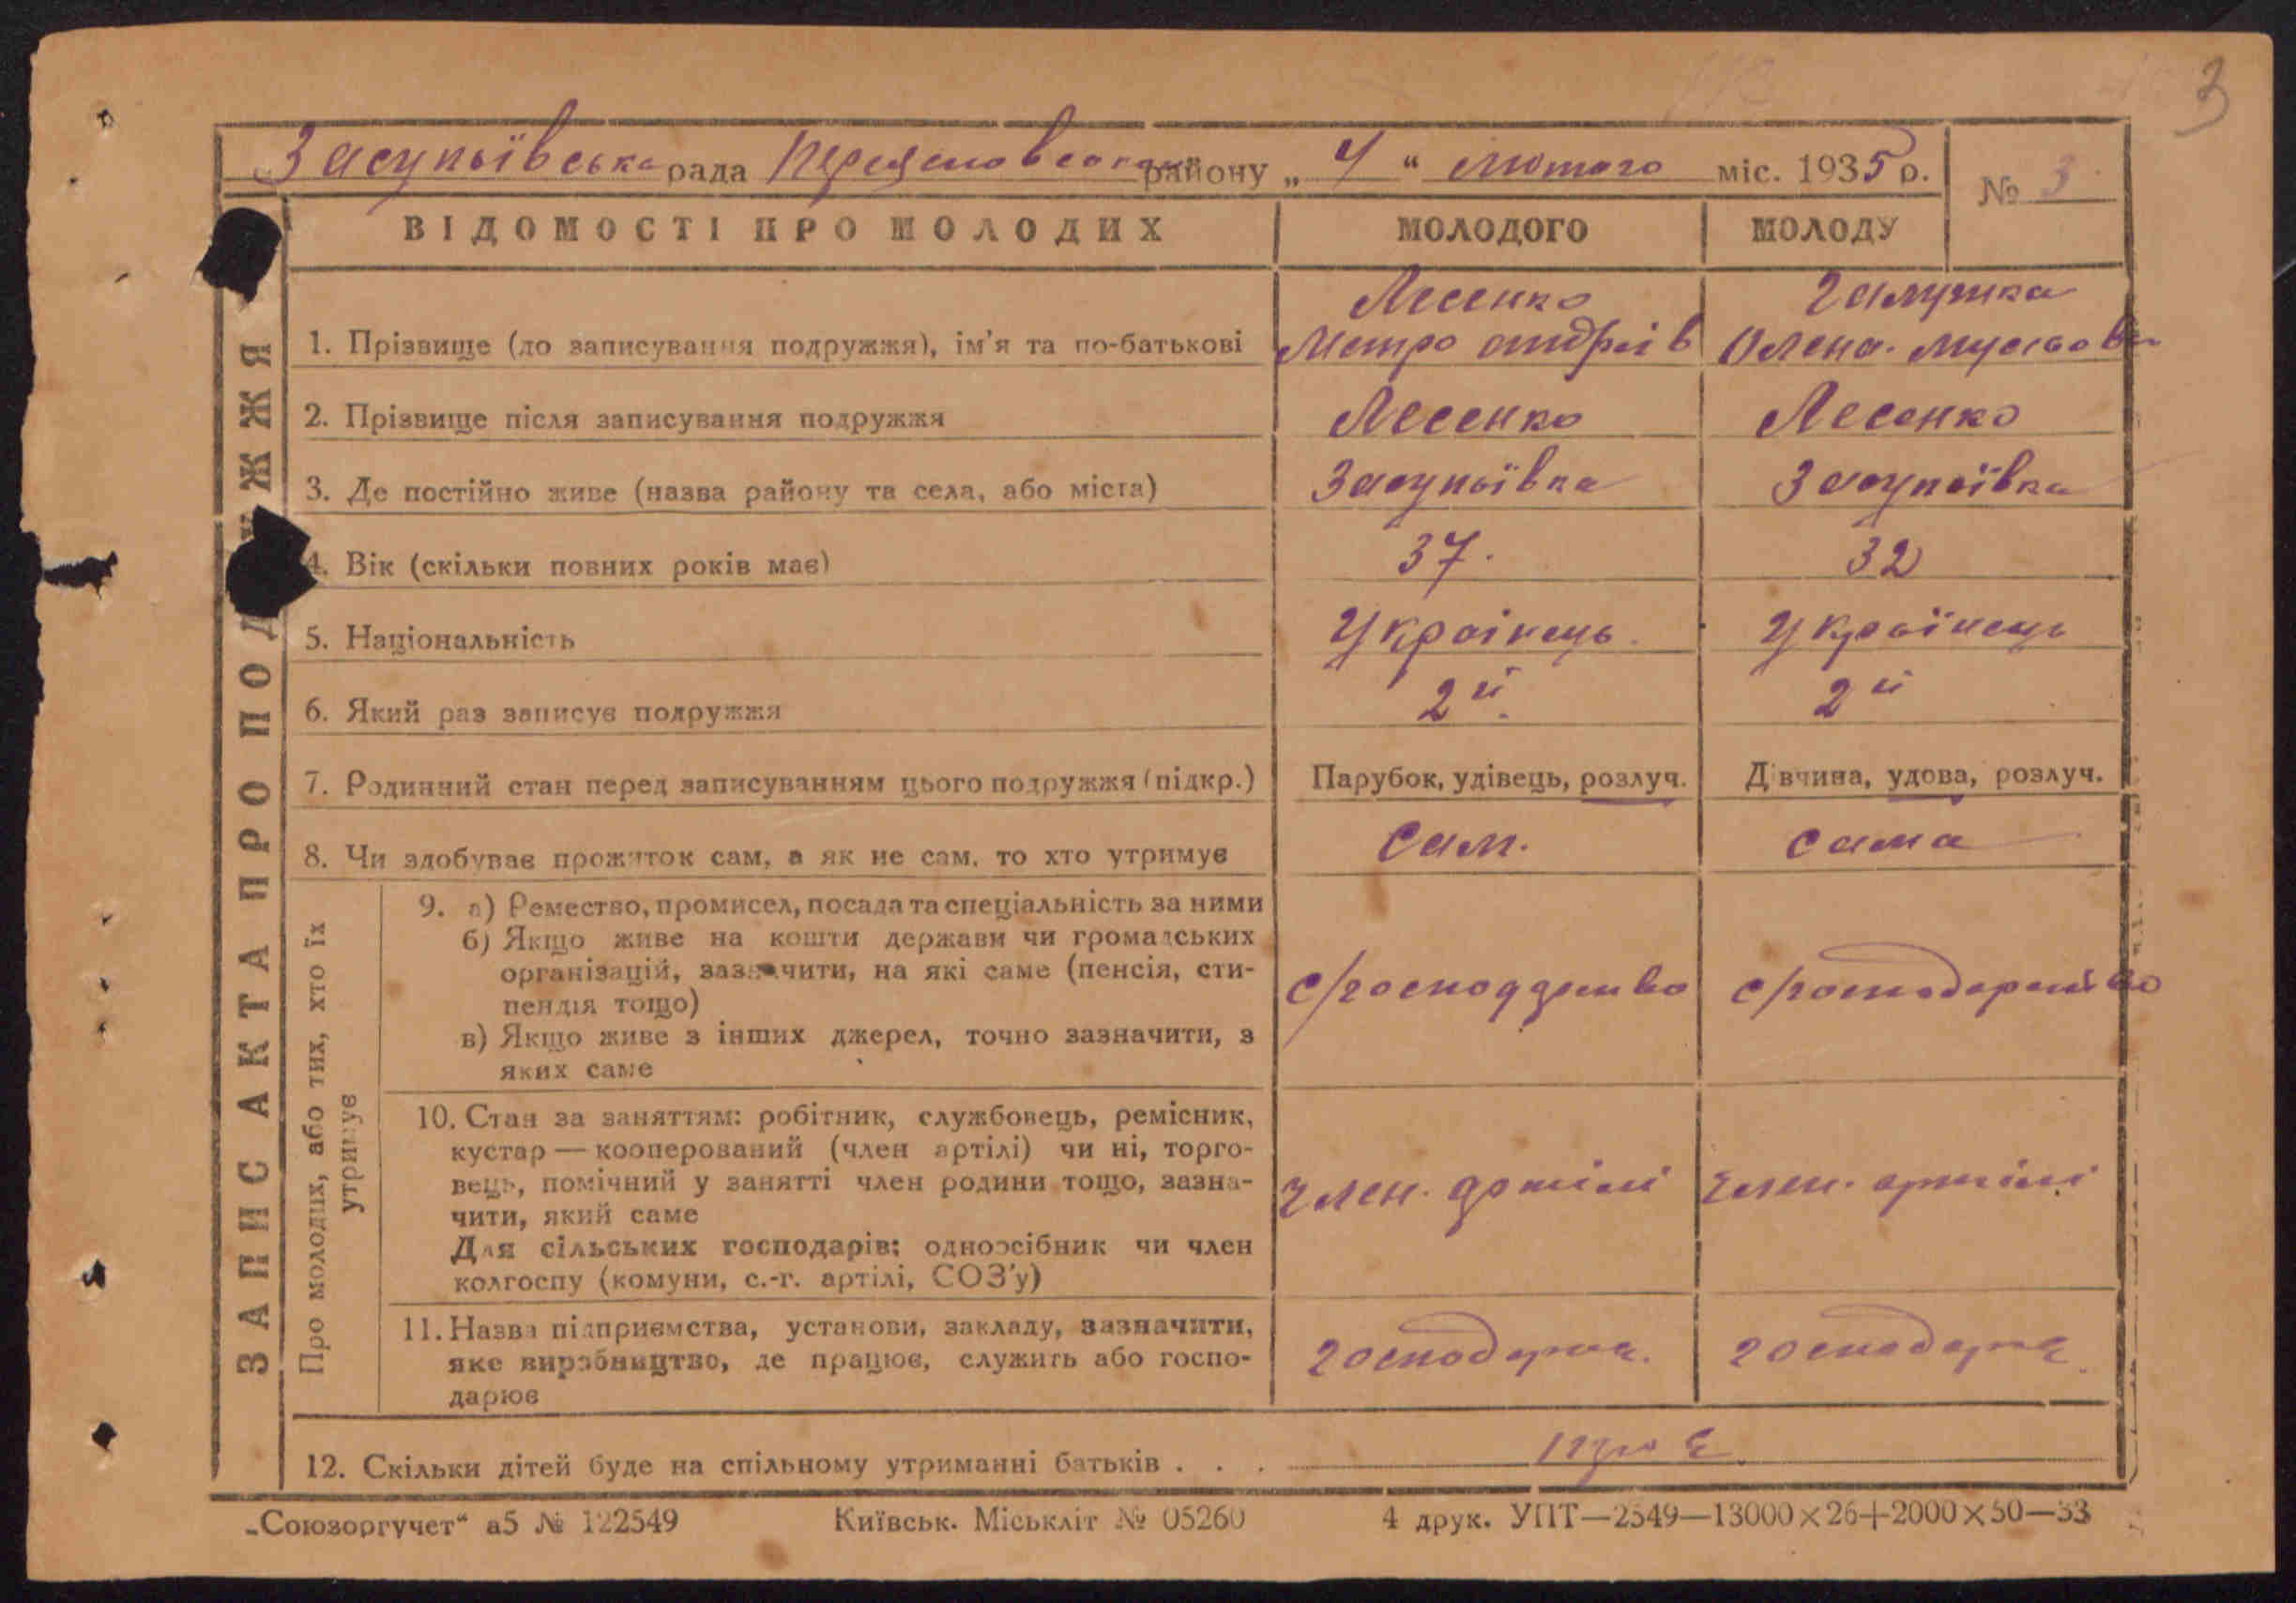 3
Засупоївська рада району „ 4 “ лютого міс. 1935 р.
№ 3
ВІДОМОСТІ ПРО МОЛОДИХ
МОЛОДОГО
МОЛОДУ
ЗАПИС АКТА ПРО ПОД ЖЖЯ
1. Прізвище (до записування подружжя), ім'я та по-батькові
Лесенко
Петро андріів
Галушка
Олена
2. Прізвище після записування подружжя
Лесенко
Лесенко
3. Де постійно живе (назва району та села, або міста)
Засупоївка
Засупоївка
4. Вік (скільки повних років має)
37.
32
5. Національність
Українець
Українець
6. Який раз записує подружжя
2й
2й
7. Родинний стан перед записуванням цього подружжя (підкр.)
Парубок, удівець, розлуч.
Дівчина, удова, розлуч.
8. Чи здобуває прожиток сам, а як не сам, то хто утримує
Сам.
сама
Про молодих, або тих, хто їх
утримує
9. а) Ремество, промисел, посада та спеціальність за ними
б) Якщо живе на кошти держави чи громадських
організацій, зазначити, на які саме (пенсія, сти-
пендія тощо)
в) Якщо живе з інших джерел, точно зазначити, з
яких саме
с/господарство
10. Стан за заняттям: робітник, службовець, ремісник,
кустар — кооперований (член артілі) чи ні, торго-
вець, помічний у занятті член родини тощо, зазна-
чити, який саме
Для сільських господарів: одноосібник чи член
колгоспу (комуни, с.-г. артілі, СОЗ'у)
член. артілі
член. артілі
11. Назва підприємства, установи, закладу, зазначити,
яке виробництво, де працює, служить або госпо-
дарює
12. Скільки дітей буде на спільному утриманні батьків . . .
„Союзоргучет“ а5 № 122549
Київськ. Міськліт № 05260
4 друк. УПТ—2549—13000×26+2000×50—33